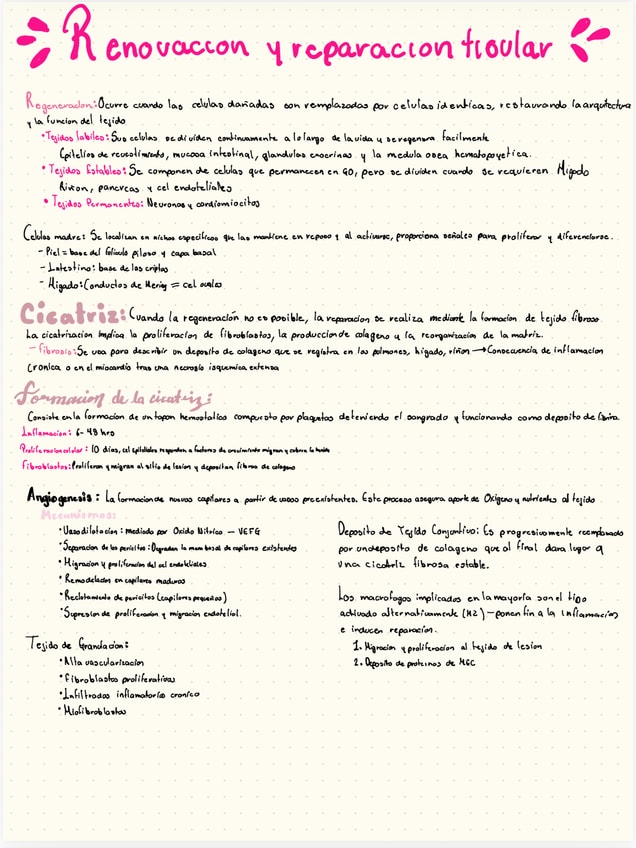 Renovaccon y reparacion tisular
Regeneracion: Ocurre cuando las celulas dañadas son remplazadas por celulas identicas, restaurando la arquitectura
y la funcion del tejido
•Tejidos labiles: Sus celulas se dividen continuamente a lo largo de la vida y se regenera facilmente
Epitelios de revestimiento, mucosa intestinal, glandulas exocrinas y la medula osea hematopoyetica.
•Tejidos Estables: Se componen de celulas que permanecen en G0, pero se dividen cuando se requieren Higado
Riñon, pancreas y cel endoteliales
•Tejidos Permanentes: Neuronas y cardiomiocitos
Celulas madre: Se localizan en nichos especificos que las mantiene en reposo y al activarse, proporciona señales para proliferar y diferenciarse.
- Piel = base del foliculo piloso y capa basal
- Intestino: base de las criptas
- Higado: Conductos de Hering = cel ovales
Cicatriz: Cuando la regeneración no es posible, la reparacion se realiza mediante la formacion de tejido fibroso.
La cicatrizacion implica la proliferacion de fibroblastos, la produccion de colageno y la reorganizacion de la matriz.
- Fibrosis: Se usa para describir un deposito de colageno que se registra en los pulmones, higado, riñon → Consecuencia de inflamacion
cronica o en el miocardio tras una necrosis isquemica extensa
formacion de la cicatriz:
Consiste en la formacion de un tapon hemostatico compuesto por plaquetas deteniendo el sangrado y funcionando como deposito de fibrina.
Inflamacion: 6-48 hrs
Proliferacion celular: 10 dias, cel epiteliales responden a factores de crecimiento migran y cubre la herida
Fibroblastos: Proliferan y migran al sitio de lesion y depositan fibras de colageno
Angiogenesis: La formacion de nuevos capilares a partir de vasos preexistentes. Este proceso asegura aporte de Oxigeno y nutrientes al tejido
Mecanismos:
•Vasodilatacion: mediado por Oxido Nitrico — VEFG
•Separacion de los pericitos: Degradan la mem basal de capilares existentes
•Migracion y proliferacion del cel endoteliales
•Remodelacion en capilares maduros
•Reclutamiento de pericitos (capilares pequeños)
•Supresion de proliferacion y migracion endotelial.
Tejido de Granulacion:
•Alta vascularizacion
•Fibroblastos proliferativos
•Infiltrados inflamatorio cronico
•Miofibroblastos
Deposito de Tejido Conjuntivo: Es progresivamente reemplazado
por un deposito de colageno que al final dara lugar a
una cicatriz fibrosa estable.
Los macrofagos implicados en la mayoria son el tipo
activado alternativamente (M2) — ponen fin a la inflamacion
e inducen reparacion.
1. Migracion y proliferacion al tejido de lesion
2. Deposito de proteinas de MEC